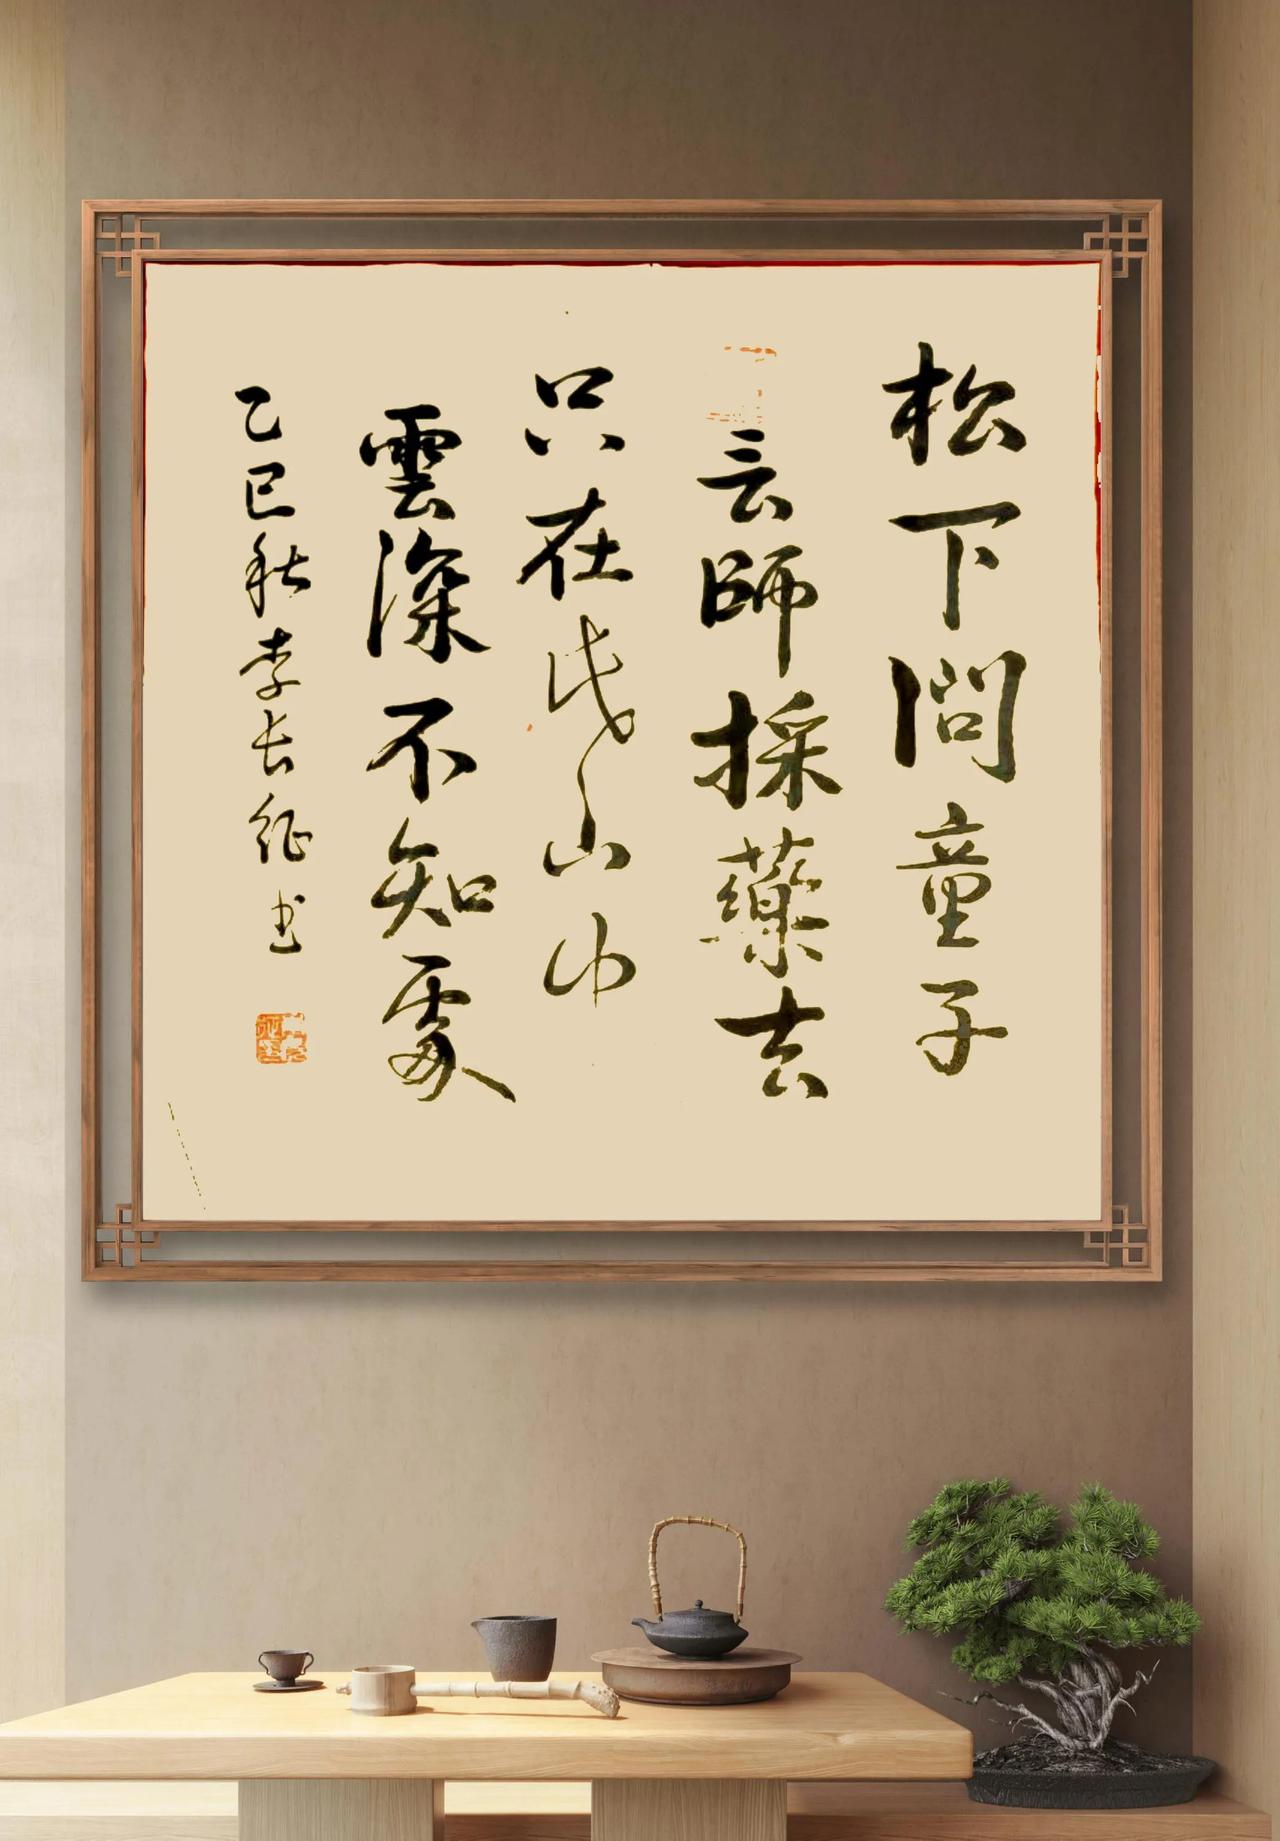 松下問童子
言師採藥去
只在此山中
雲深不知處
乙巳秋李长征书